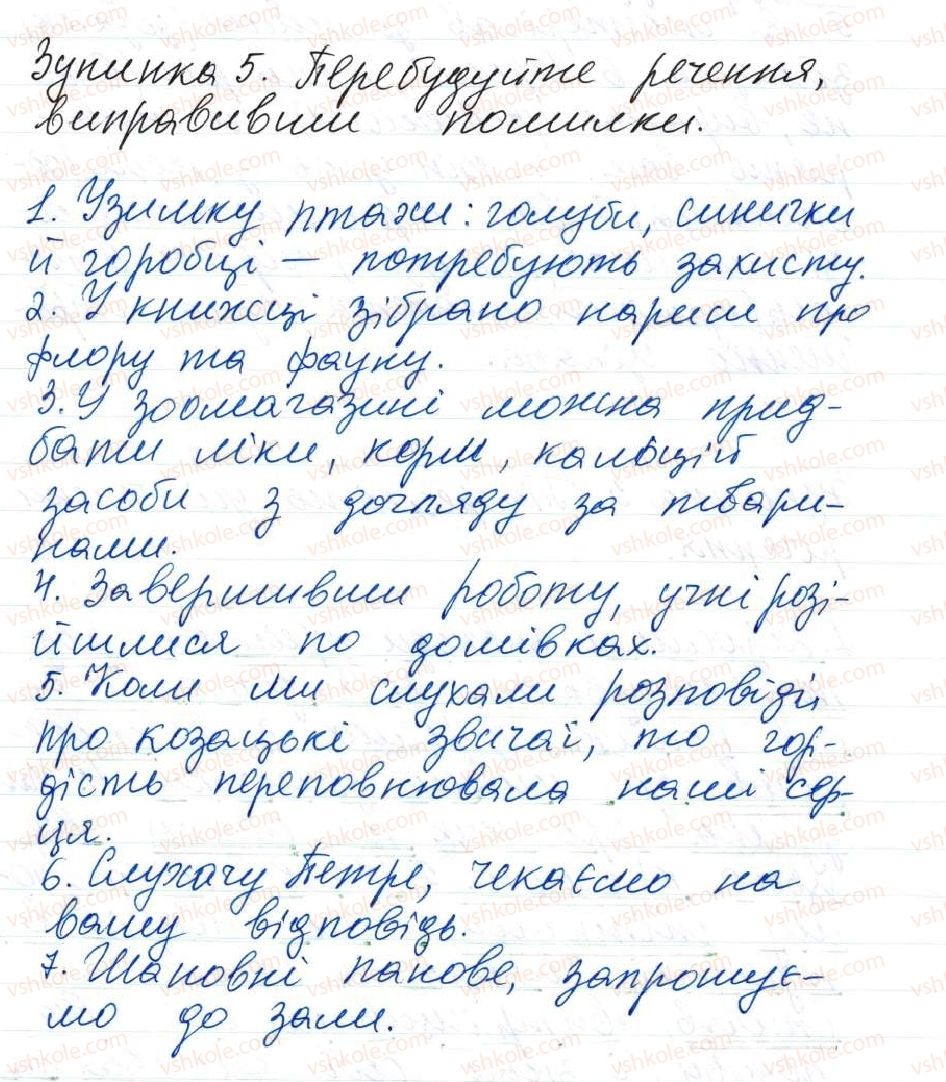 Зупинка 5. Перебудуйте речення,
виправивши помилки.
1. Узимку птахи: голуби, синички
й горобці — потребують захисту.
2. У книжці зібрано нариси про
флору та фауну.
3. У зоомагазині можна прид-
бати ліки, корм, кальцій
засоби з догляду за твари-
нами.
4. Завершивши роботу, учні розі-
йшлися по домівках.
5. Коли ми слухали розповіді
про козацькі звичаї, то гор-
дість переповнювала наші сер-
ця.
6. Слухачу Петре, чекаємо на
вашу відповідь.
7. Шановні панове, запрошує-
мо до зали.